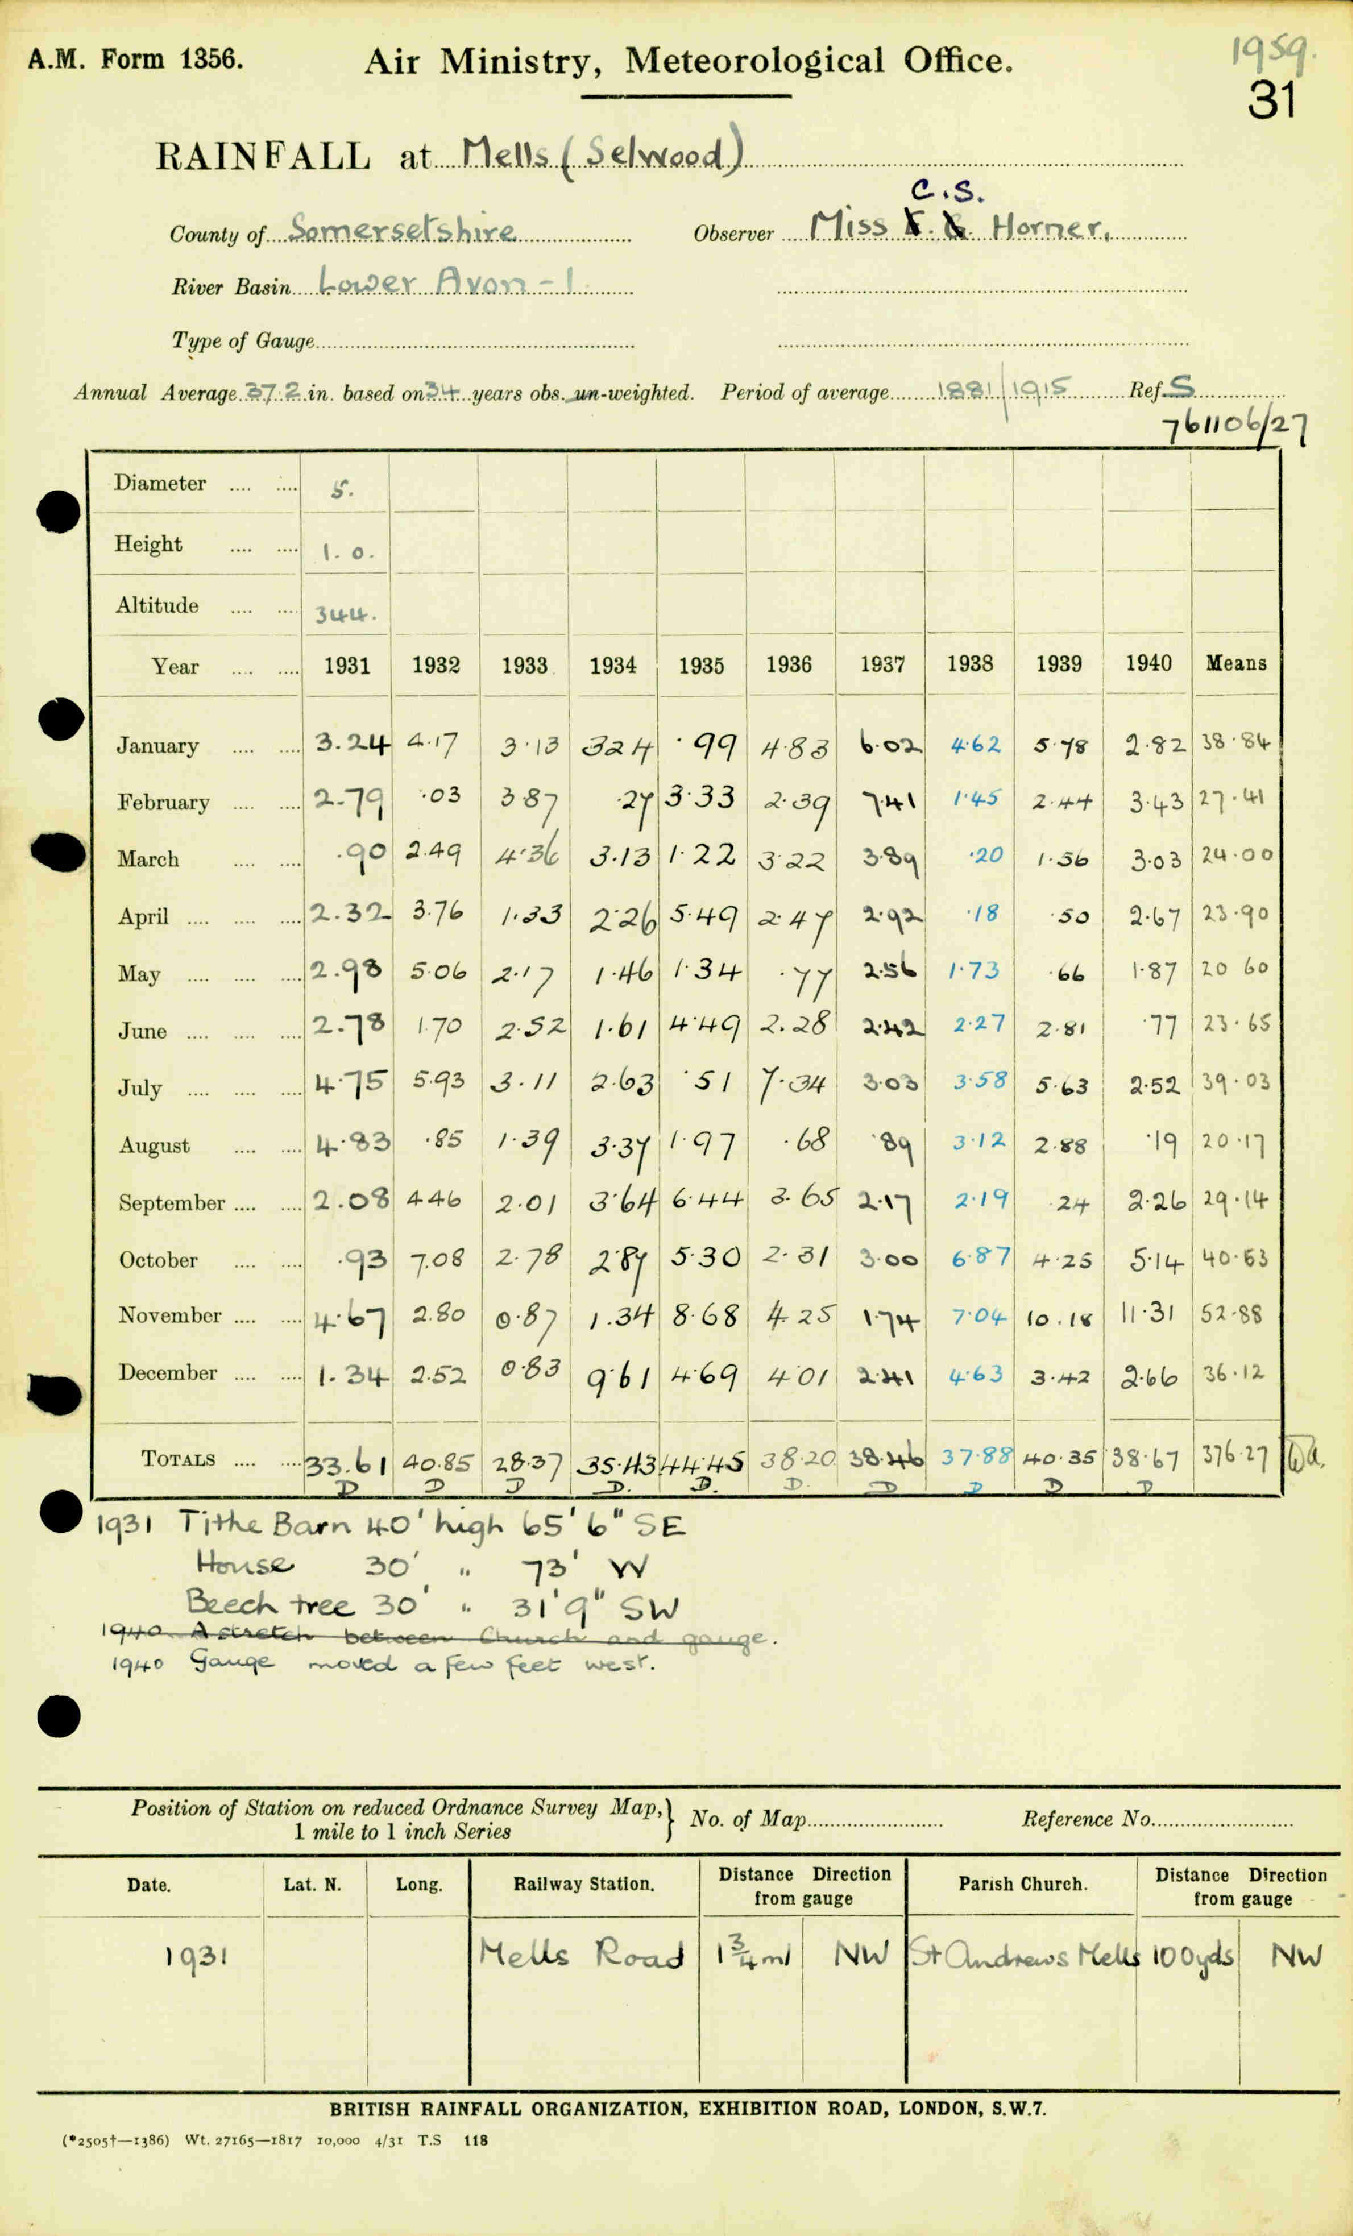 A.M. Form 1356. Air Ministry, Meteorological Office. 1959.
31
RAINFALL at Mells (Selwood)
C.S.
County of Somersetshire Observer Miss Horner,
River Basin Lower Avon - 1
Type of Gauge
Annual Average 37.2 in. based on 34 years obs. un-weighted. Period of average 1881/1915 Ref. S
761106/27
Diameter .... .... 5.
Height .... .... 1. 0.
Altitude .... .... 344.
Year .... .... 1931 1932 1933 1934 1935 1936 1937 1938 1939 1940 Means
January .... .... 3.24 4.17 3.13 324 .99 4.83 6.02 4.62 5.78 2.82 38.84
February .... .... 2.79 .03 3.87 .27 3.33 2.39 7.41 1.45 2.44 3.43 27.41
March .... .... .90 2.49 4.36 3.13 1.22 3.22 3.89 .20 1.56 3.03 24.00
April .... .... .... 2.32 3.76 1.33 2.26 5.49 2.47 2.92 .18 .50 2.67 23.90
May .... .... .... 2.98 5.06 2.17 1.46 1.34 .77 2.56 1.73 .66 1.87 20 60
June .... .... .... 2.78 1.70 2.52 1.61 4.49 2.28 2.42 2.27 2.81 .77 23.65
July .... .... .... 4.75 5.93 3.11 2.63 .51 7.34 3.03 3.58 5.63 2.52 39.03
August .... .... 4.83 .85 1.39 3.37 1.97 .68 .89 3.12 2.88 .19 20.17
September .... .... 2.08 4.46 2.01 3.64 6.44 3.65 2.17 2.19 .24 2.26 29.14
October .... .... .93 7.08 2.78 2.87 5.30 2.31 3.00 6.87 4.25 5.14 40.53
November .... .... 4.67 2.80 0.87 1.34 8.68 4.25 1.74 7.04 10.18 11.31 52.88
December .... .... 1.34 2.52 0.83 9.61 4.69 4.01 2.41 4.63 3.42 2.66 36.12
TOTALS .... .... 33.61 40.85 28.37 35.43 44.45 38.20 38.46 37.88 40.35 38.67 376.27
D D D D. D. D. D D D D
1931 Tithe Barn 40' high 65' 6" SE
House 30' " 73' W
Beech tree 30' " 31' 9" SW
1940 A stretch between Church and gauge.
1940 Gauge moved a few feet west.
Position of Station on reduced Ordnance Survey Map, } No. of Map Reference No.
1 mile to 1 inch Series
Date. Lat. N. Long. Railway Station. Distance Direction from gauge Parish Church. Distance Direction from gauge
1931 Mells Road 1 3/4 ml NW St Andrews Mells 100yds NW
BRITISH RAINFALL ORGANIZATION, EXHIBITION ROAD, LONDON, S.W.7.
(*2505†—1386) Wt. 27165—1817 10,000 4/31 T.S 118